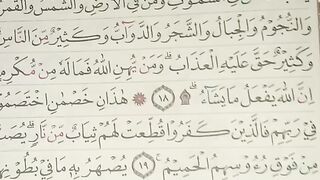 السَّمٰوٰتِ وَمَنْ فِي الْأَرْضِ وَالشَّمْسُ وَالْقَمَرُ
وَالنُّجُومُ وَالْجِبَالُ وَالشَّجَرُ وَالدَّوَآبُّ وَكَثِيرٌ مِنَ النَّاسِ
وَكَثِيرٌ حَقَّ عَلَيْهِ الْعَذَابُ ۗ وَمَنْ يُهِنِ اللّٰهُ فَمَا لَهُ مِنْ مُكْرِمٍ
إِنَّ اللّٰهَ يَفْعَلُ مَا يَشَآءُ ۩ ﴿١٨﴾ ۞ هٰذَانِ خَصْمٰنِ اخْتَصَمُوا
فِي رَبِّهِمْ فَالَّذِينَ كَفَرُوا قُطِّعَتْ لَهُمْ ثِيَابٌ مِنْ نَارٍ ۗ يُصَبُّ
مِنْ فَوْقِ رُءُوسِهِمُ الْحَمِيمُ ﴿١٩﴾ يُصْهَرُ بِهِ مَا فِي بُطُونِهِمْ